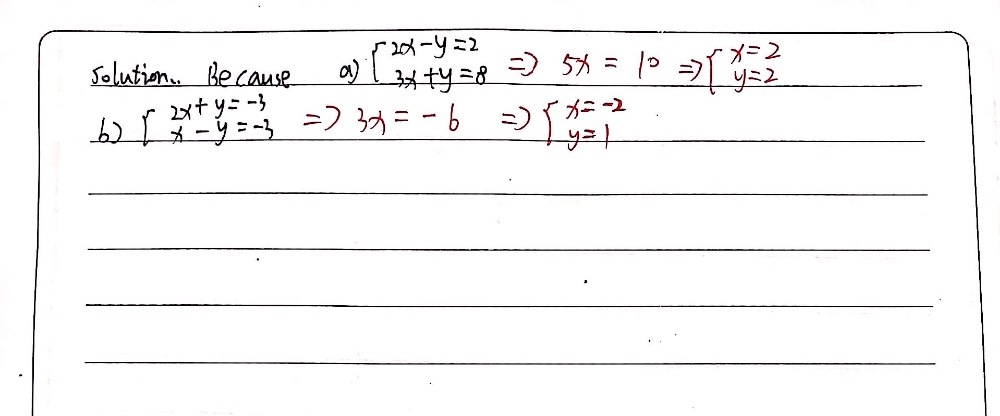 Solution.. Because a) { 2x-y=2 3x+y=8 => 5x = 10 => { x=2 y=2
b) { 2x+y=-3 x-y=-3 => 3x = -6 => { x=-2 y=1